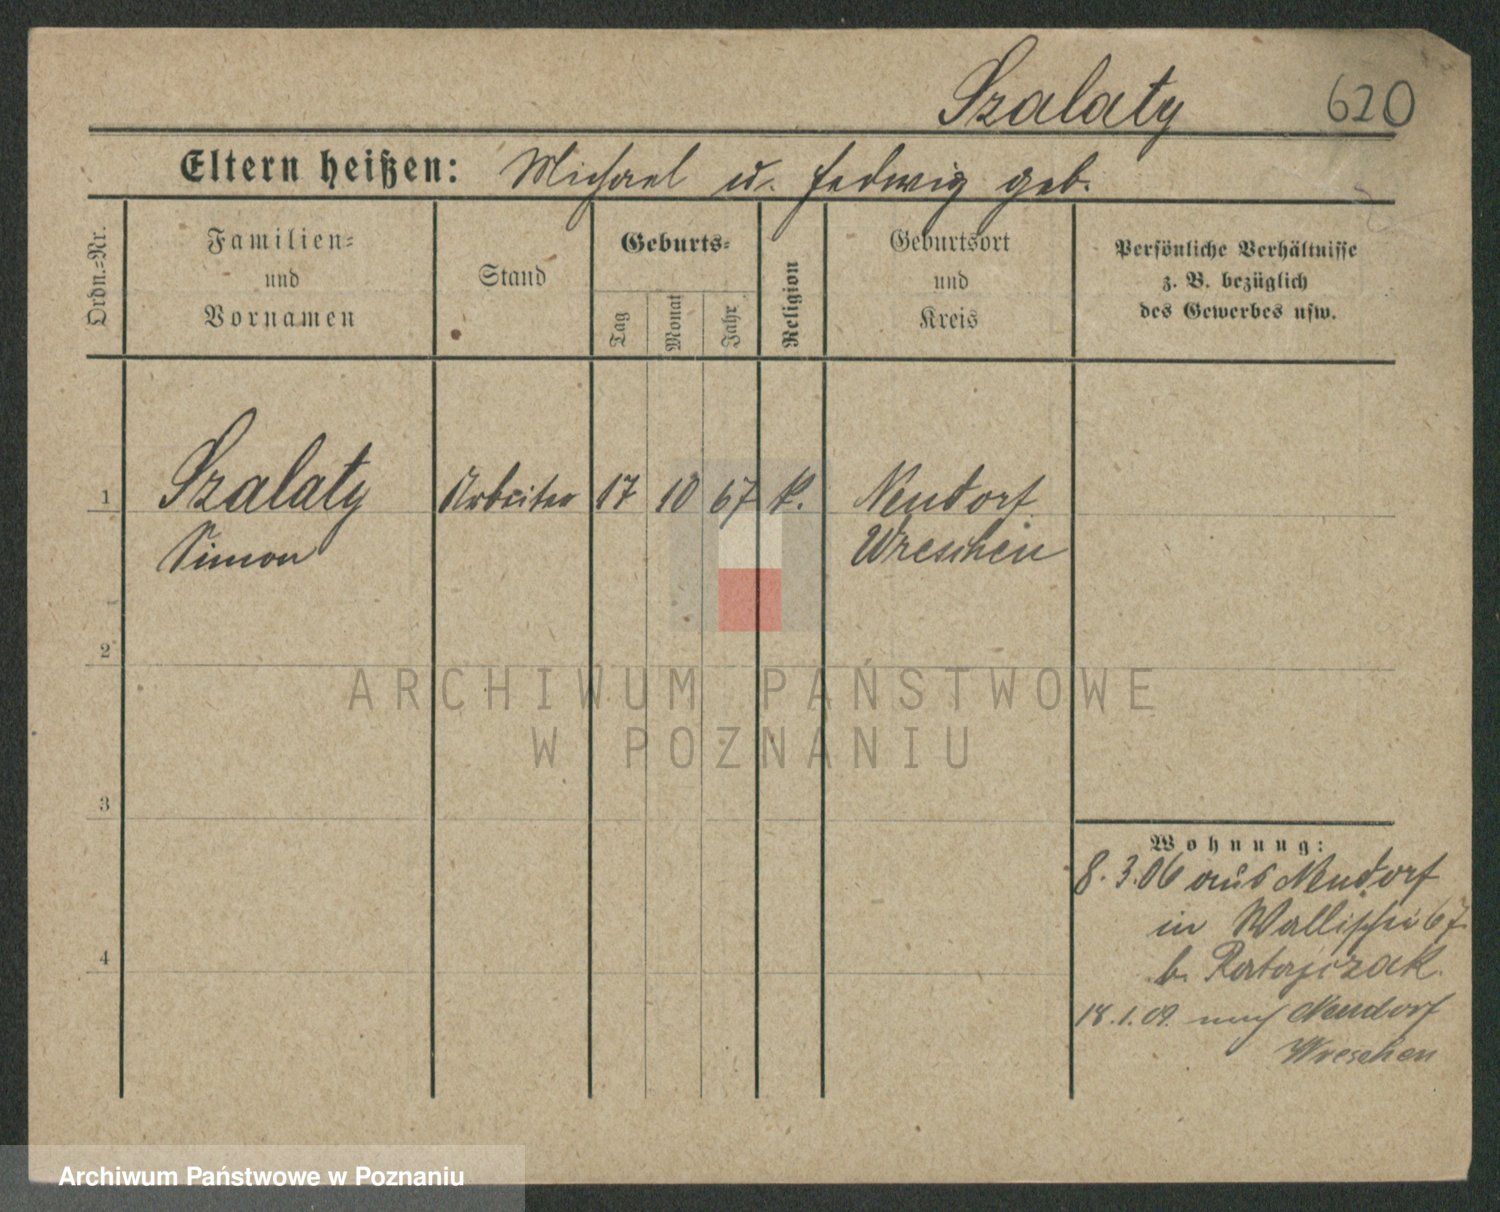 Szalaty 620
Eltern heißen: Michael u. Hedwig geb.
Ordn.=Nr.
Familien=
und
Vornamen
Stand
Geburts=
Tag
Monat
Jahr
Religion
Geburtsort
und
Kreis
Persönliche Verhältnisse
z. B. bezüglich
des Gewerbes usw.
1 Szalaty Arbeiter 17 10 67 k. Neudorf
Simon Wreschen
2
ARCHIWUM PAŃSTWOWE
W POZNANIU
3
Wohnung:
8.3.06 aus Neudorf
in Wallischei 67
b. Ratajczak.
4
18.1.09. nach Neudorf
Wreschen
Archiwum Państwowe w Poznaniu